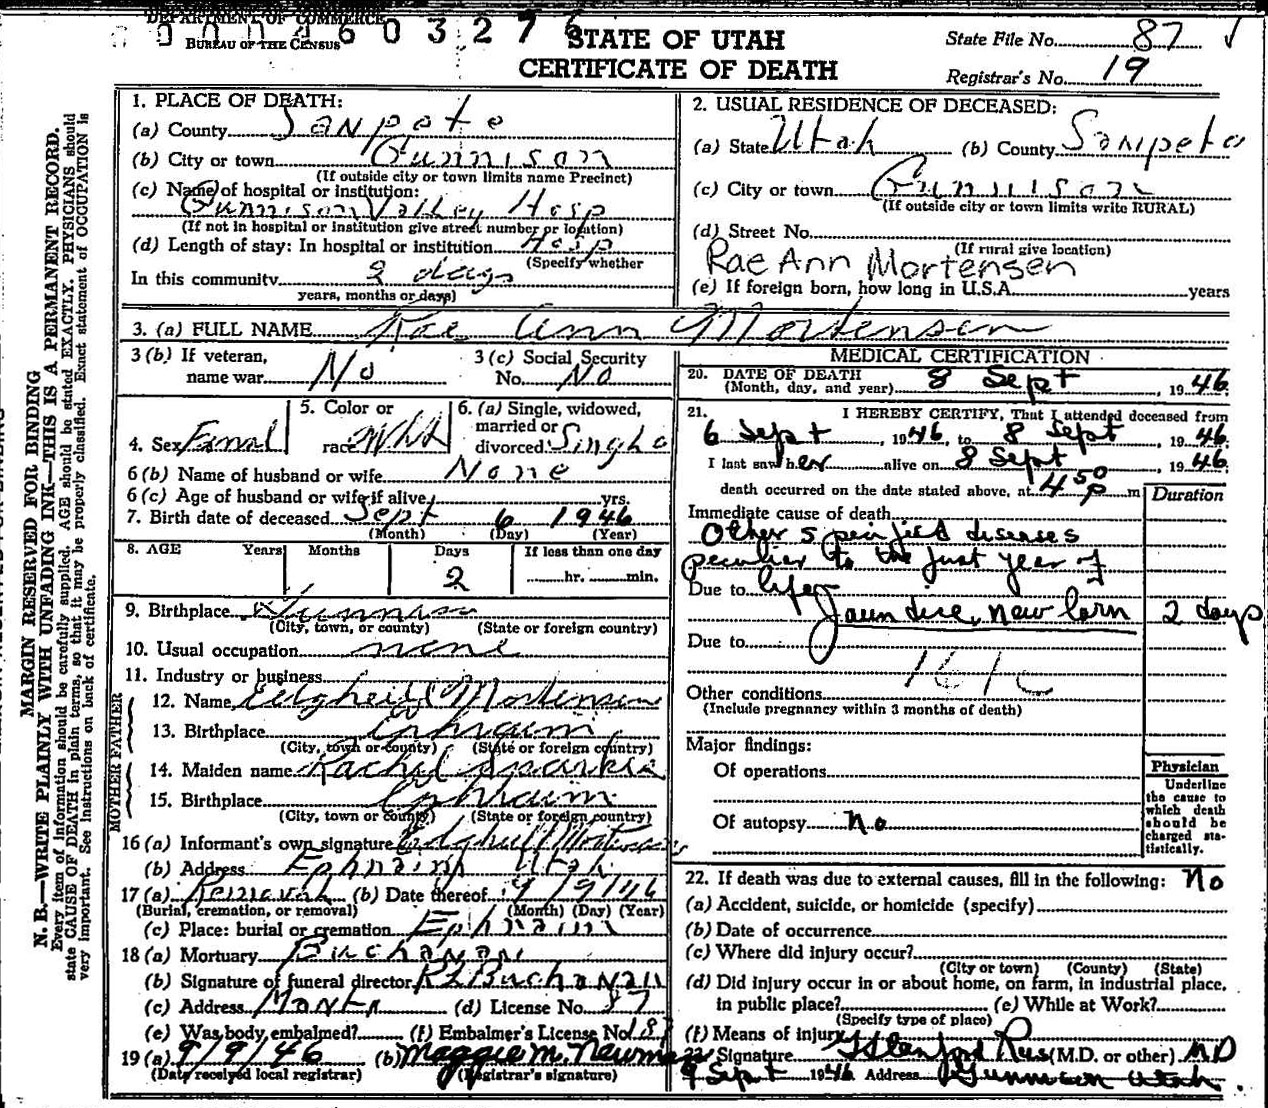 DEPARTMENT OF COMMERCE
BUREAU OF THE CENSUS
0 0 0 4 6 0 3 2 7 6
STATE OF UTAH
CERTIFICATE OF DEATH
State File No. 87 √
Registrar's No. 19
MARGIN RESERVED FOR BINDING
N. B.—WRITE PLAINLY WITH UNFADING INK—THIS IS A PERMANENT RECORD.
Every item of information should be carefully supplied. AGE should be stated EXACTLY. PHYSICIANS should
state CAUSE OF DEATH in plain terms, so that it may be properly classified. Exact statement of OCCUPATION is
very important. See instructions on back of certificate.
1. PLACE OF DEATH:
(a) County Sanpete
(b) City or town Gunnison
(If outside city or town limits name Precinct)
(c) Name of hospital or institution:
Gunnison Valley Hosp
(If not in hospital or institution give street number or location)
(d) Length of stay: In hospital or institution Hosp
(Specify whether
In this community 2 days
years, months or days)
2. USUAL RESIDENCE OF DECEASED:
(a) State Utah (b) County Sanpete
(c) City or town Gunnison
(If outside city or town limits write RURAL)
(d) Street No.
(If rural give location)
Rae Ann Mortensen
(e) If foreign born, how long in U.S.A. years
3. (a) FULL NAME Rae Ann Mortensen
3 (b) If veteran, name war No
3 (c) Social Security No. No
4. Sex Femal
5. Color or race Wht
6. (a) Single, widowed, married or divorced Single
6 (b) Name of husband or wife None
6 (c) Age of husband or wife if alive yrs.
7. Birth date of deceased Sept 6 1946
(Month) (Day) (Year)
8. AGE Years Months Days If less than one day
2 hr. min.
9. Birthplace Gunnison
(City, town, or county) (State or foreign country)
10. Usual occupation none
11. Industry or business
FATHER
12. Name Mortensen
13. Birthplace Ephraim
(City, town or county) (State or foreign country)
MOTHER
14. Maiden name Rachel
15. Birthplace Ephraim
(City, town or county) (State or foreign country)
16 (a) Informant's own signature Mortensen
(b) Address Ephraim Utah
17 (a) Removal (b) Date thereof 9/9/46
(Burial, cremation, or removal) (Month) (Day) (Year)
(c) Place: burial or cremation Ephraim
18 (a) Mortuary Buchanan
(b) Signature of funeral director R L Buchanan
(c) Address Manti (d) License No. 87
(e) Was body embalmed? (f) Embalmer's License No. 187
19 (a) 9/9/46 (b) Maggie M. Newman
(Date received local registrar) (Registrar's signature)
MEDICAL CERTIFICATION
20. DATE OF DEATH
(Month, day, and year) 8 Sept, 1946.
21. I HEREBY CERTIFY, That I attended deceased from
6 Sept, 1946, to 8 Sept, 1946.
I last saw her alive on 8 Sept, 1946.
death occurred on the date stated above, at 4 50 p m
Duration
Immediate cause of death
Other specified diseases
peculiar to the first year of
Due to life
Jaundice, new born 2 days
Due to
161c
Other conditions
(Include pregnancy within 3 months of death)
Major findings:
Of operations
Of autopsy No
Physician
Underline
the cause to
which death
should be
charged sta-
tistically.
22. If death was due to external causes, fill in the following: No
(a) Accident, suicide, or homicide (specify)
(b) Date of occurrence
(c) Where did injury occur?
(City or town) (County) (State)
(d) Did injury occur in or about home, on farm, in industrial place,
in public place? (e) While at Work?
(Specify type of place)
(f) Means of injury
23 Signature G Stanford Rees (M.D. or other) MD
9 Sept 1946 Address Gunnison Utah.